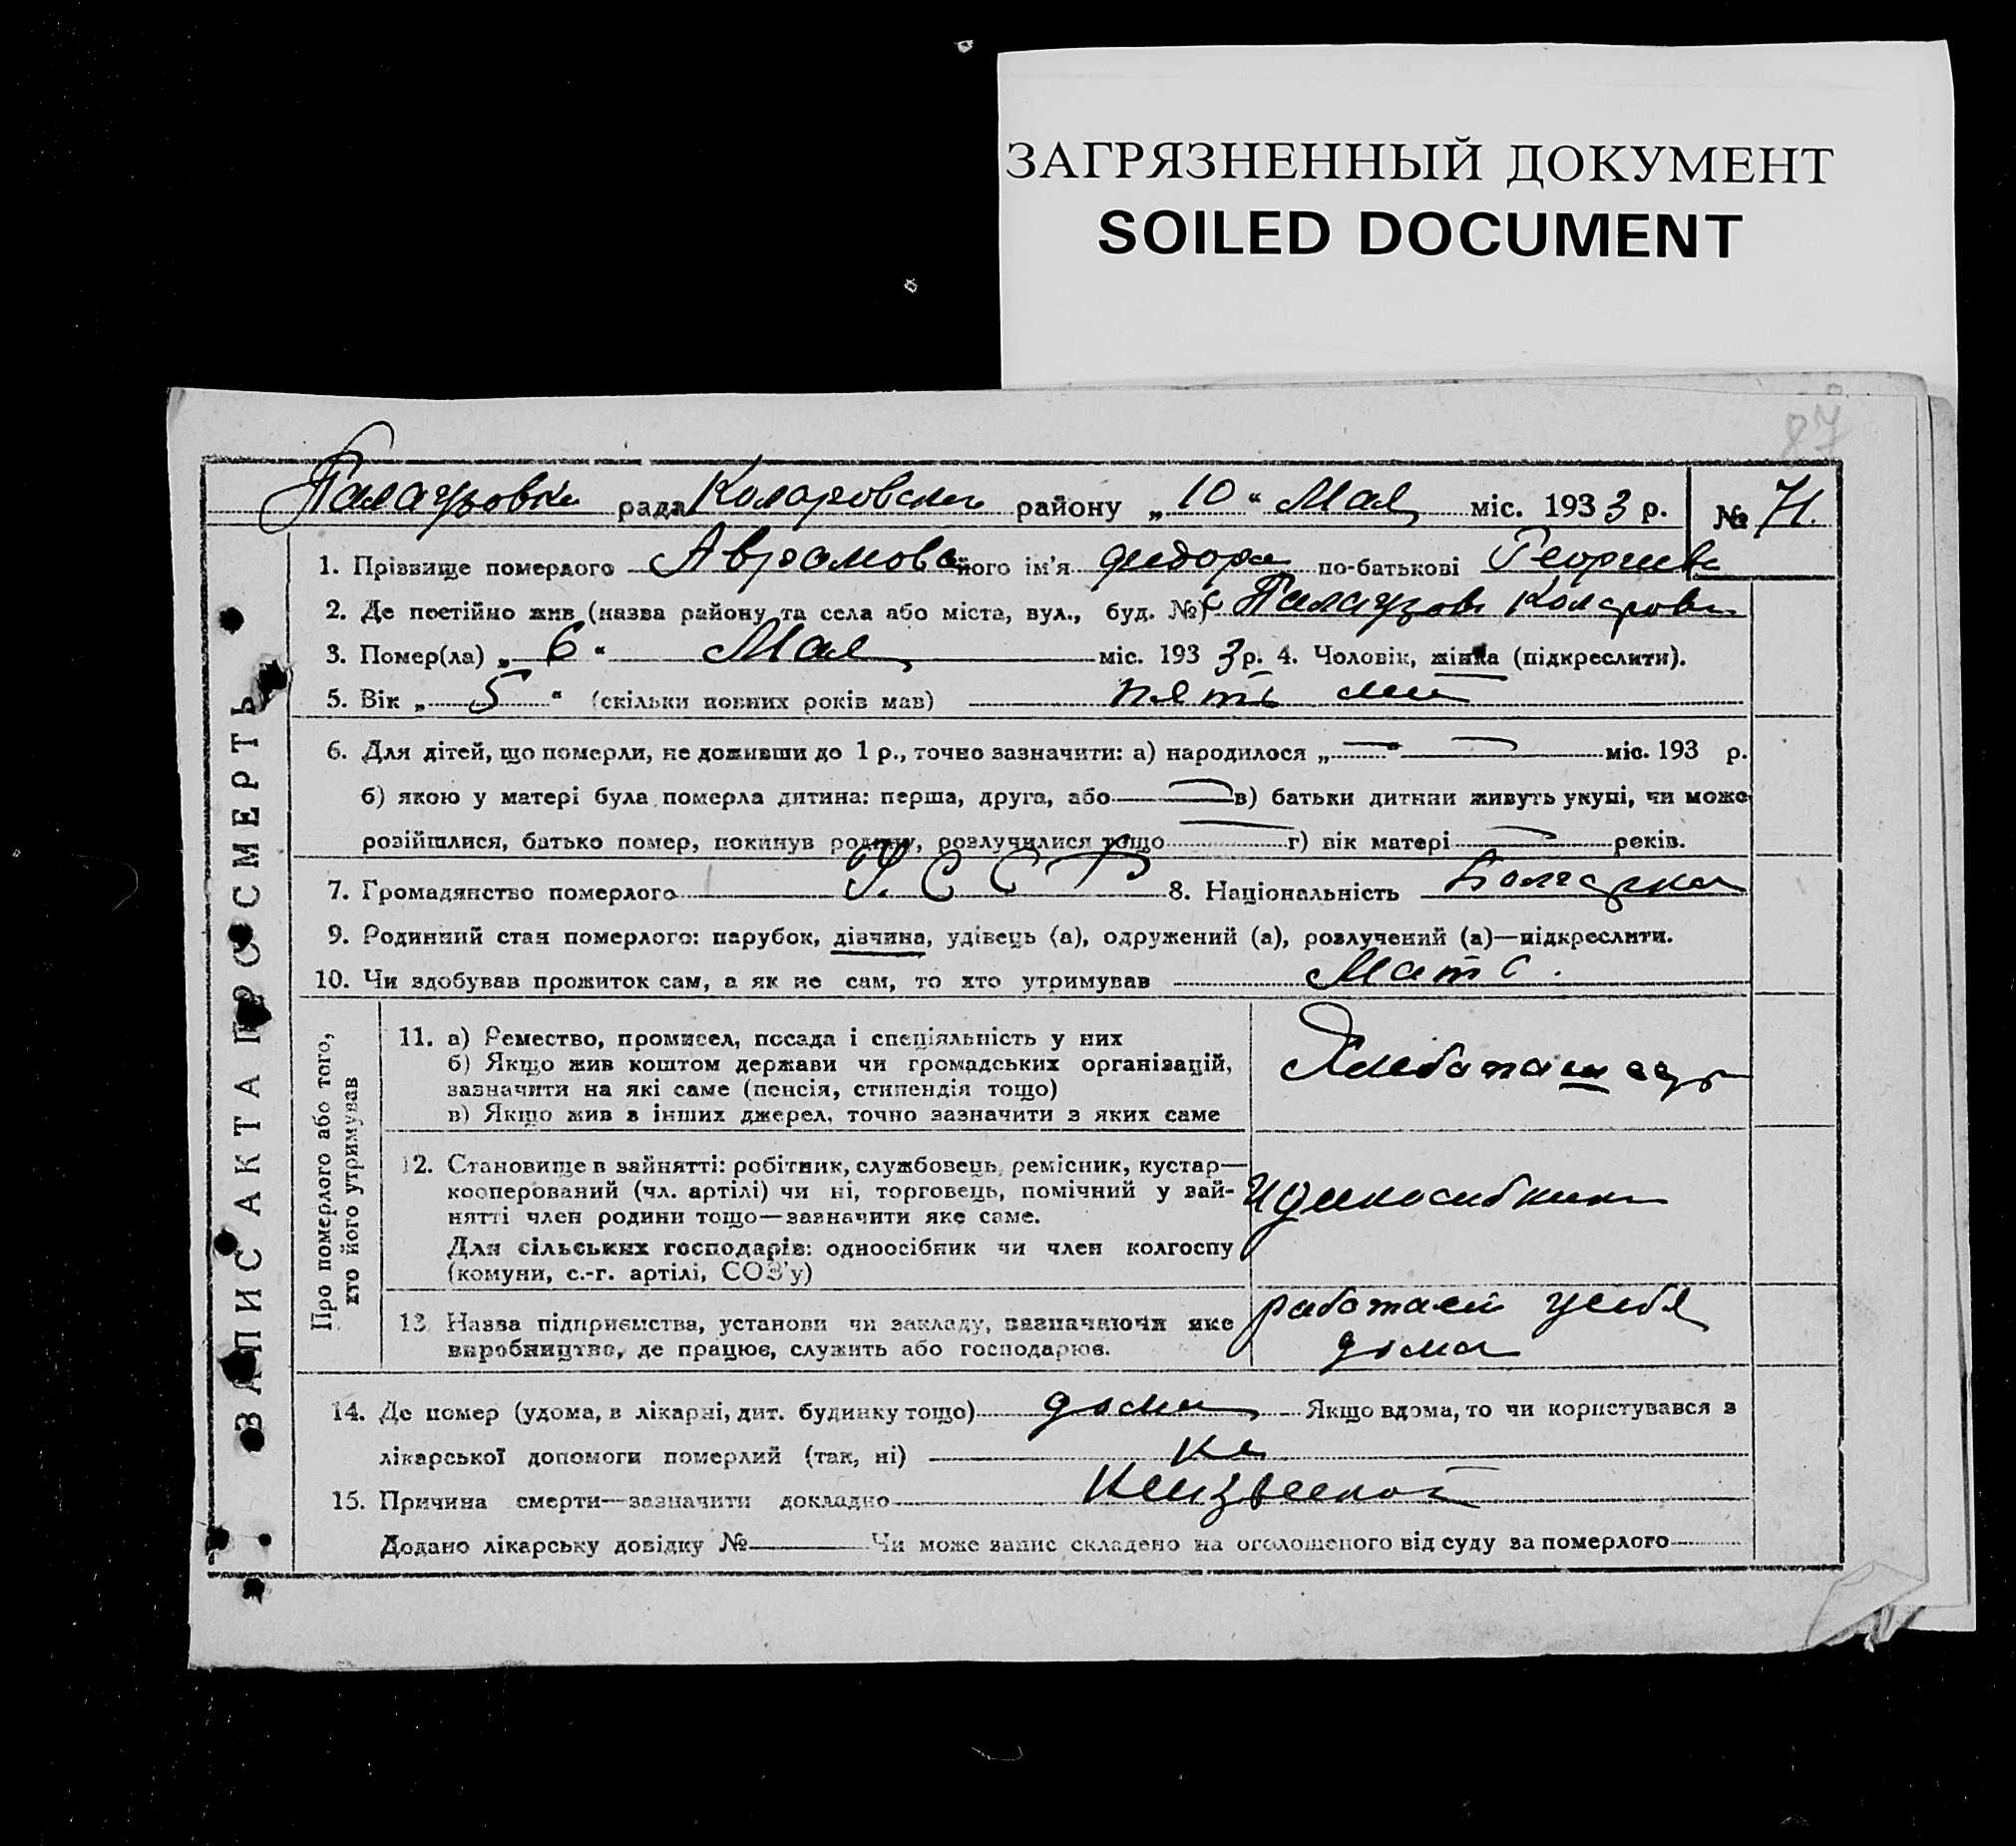 ЗАГРЯЗНЕННЫЙ ДОКУМЕНТ
SOILED DOCUMENT
87
Палаузовка рада Коларовского району „10“ Мая міс. 1933 р. № 71.
1. Прізвище померлого Аврамова його ім'я федора по-батькові Георгиев
2. Де постійно жив (назва району та села або міста, вул., буд. №) с Палаузовка Коларовск
3. Помер(ла) „6“ Мая міс. 1933 р. 4. Чоловік, жінка (підкреслити).
5. Вік „5“ (скільки повних років мав) пять лет
6. Для дітей, що померли, не доживши до 1 р., точно зазначити: а) народилося „—“ — міс. 193 р.
б) якою у матері була померла дитина: перша, друга, або — в) батьки дитини живуть укупі, чи може
розійшлися, батько помер, покинув родину, розлучилися тощо — г) вік матері — років.
7. Громадянство померлого У. С С Р 8. Національність Болгарка
9. Родинний стан померлого: парубок, дівчина, удівець (а), одружений (а), розлучений (а)—підкреслити.
10. Чи здобував прожиток сам, а як не сам, то хто утримував Мать.
ЗАПИС АКТА ПРО СМЕРТЬ
Про померлого або того, хто його утримував
11. а) Ремество, промисел, посада і спеціяльність у них
б) Якщо жив коштом держави чи громадських організацій,
зазначити на які саме (пенсія, стипендія тощо)
в) Якщо жив з інших джерел, точно зазначити з яких саме
Хлебопашець
12. Становище в зайнятті: робітник, службовець, ремісник, кустар—
кооперований (чл. артілі) чи ні, торговець, помічний у зай-
нятті член родини тощо—зазначити яке саме.
Для сільських господарів: одноосібник чи член колгоспу
(комуни, с.-г. артілі, СОЗ'у)
13. Назва підприємства, установи чи закладу, зазначаючи яке
виробництво, де працює, служить або господарює.
работает у себя
дома
14. Де помер (удома, в лікарні, дит. будинку тощо) дома Якщо вдома, то чи користувався з
лікарської допомоги померлий (так, ні) не
15. Причина смерти—зазначити докладно
Додано лікарську довідку № Чи може запис складено на оголошеного від суду за померлого